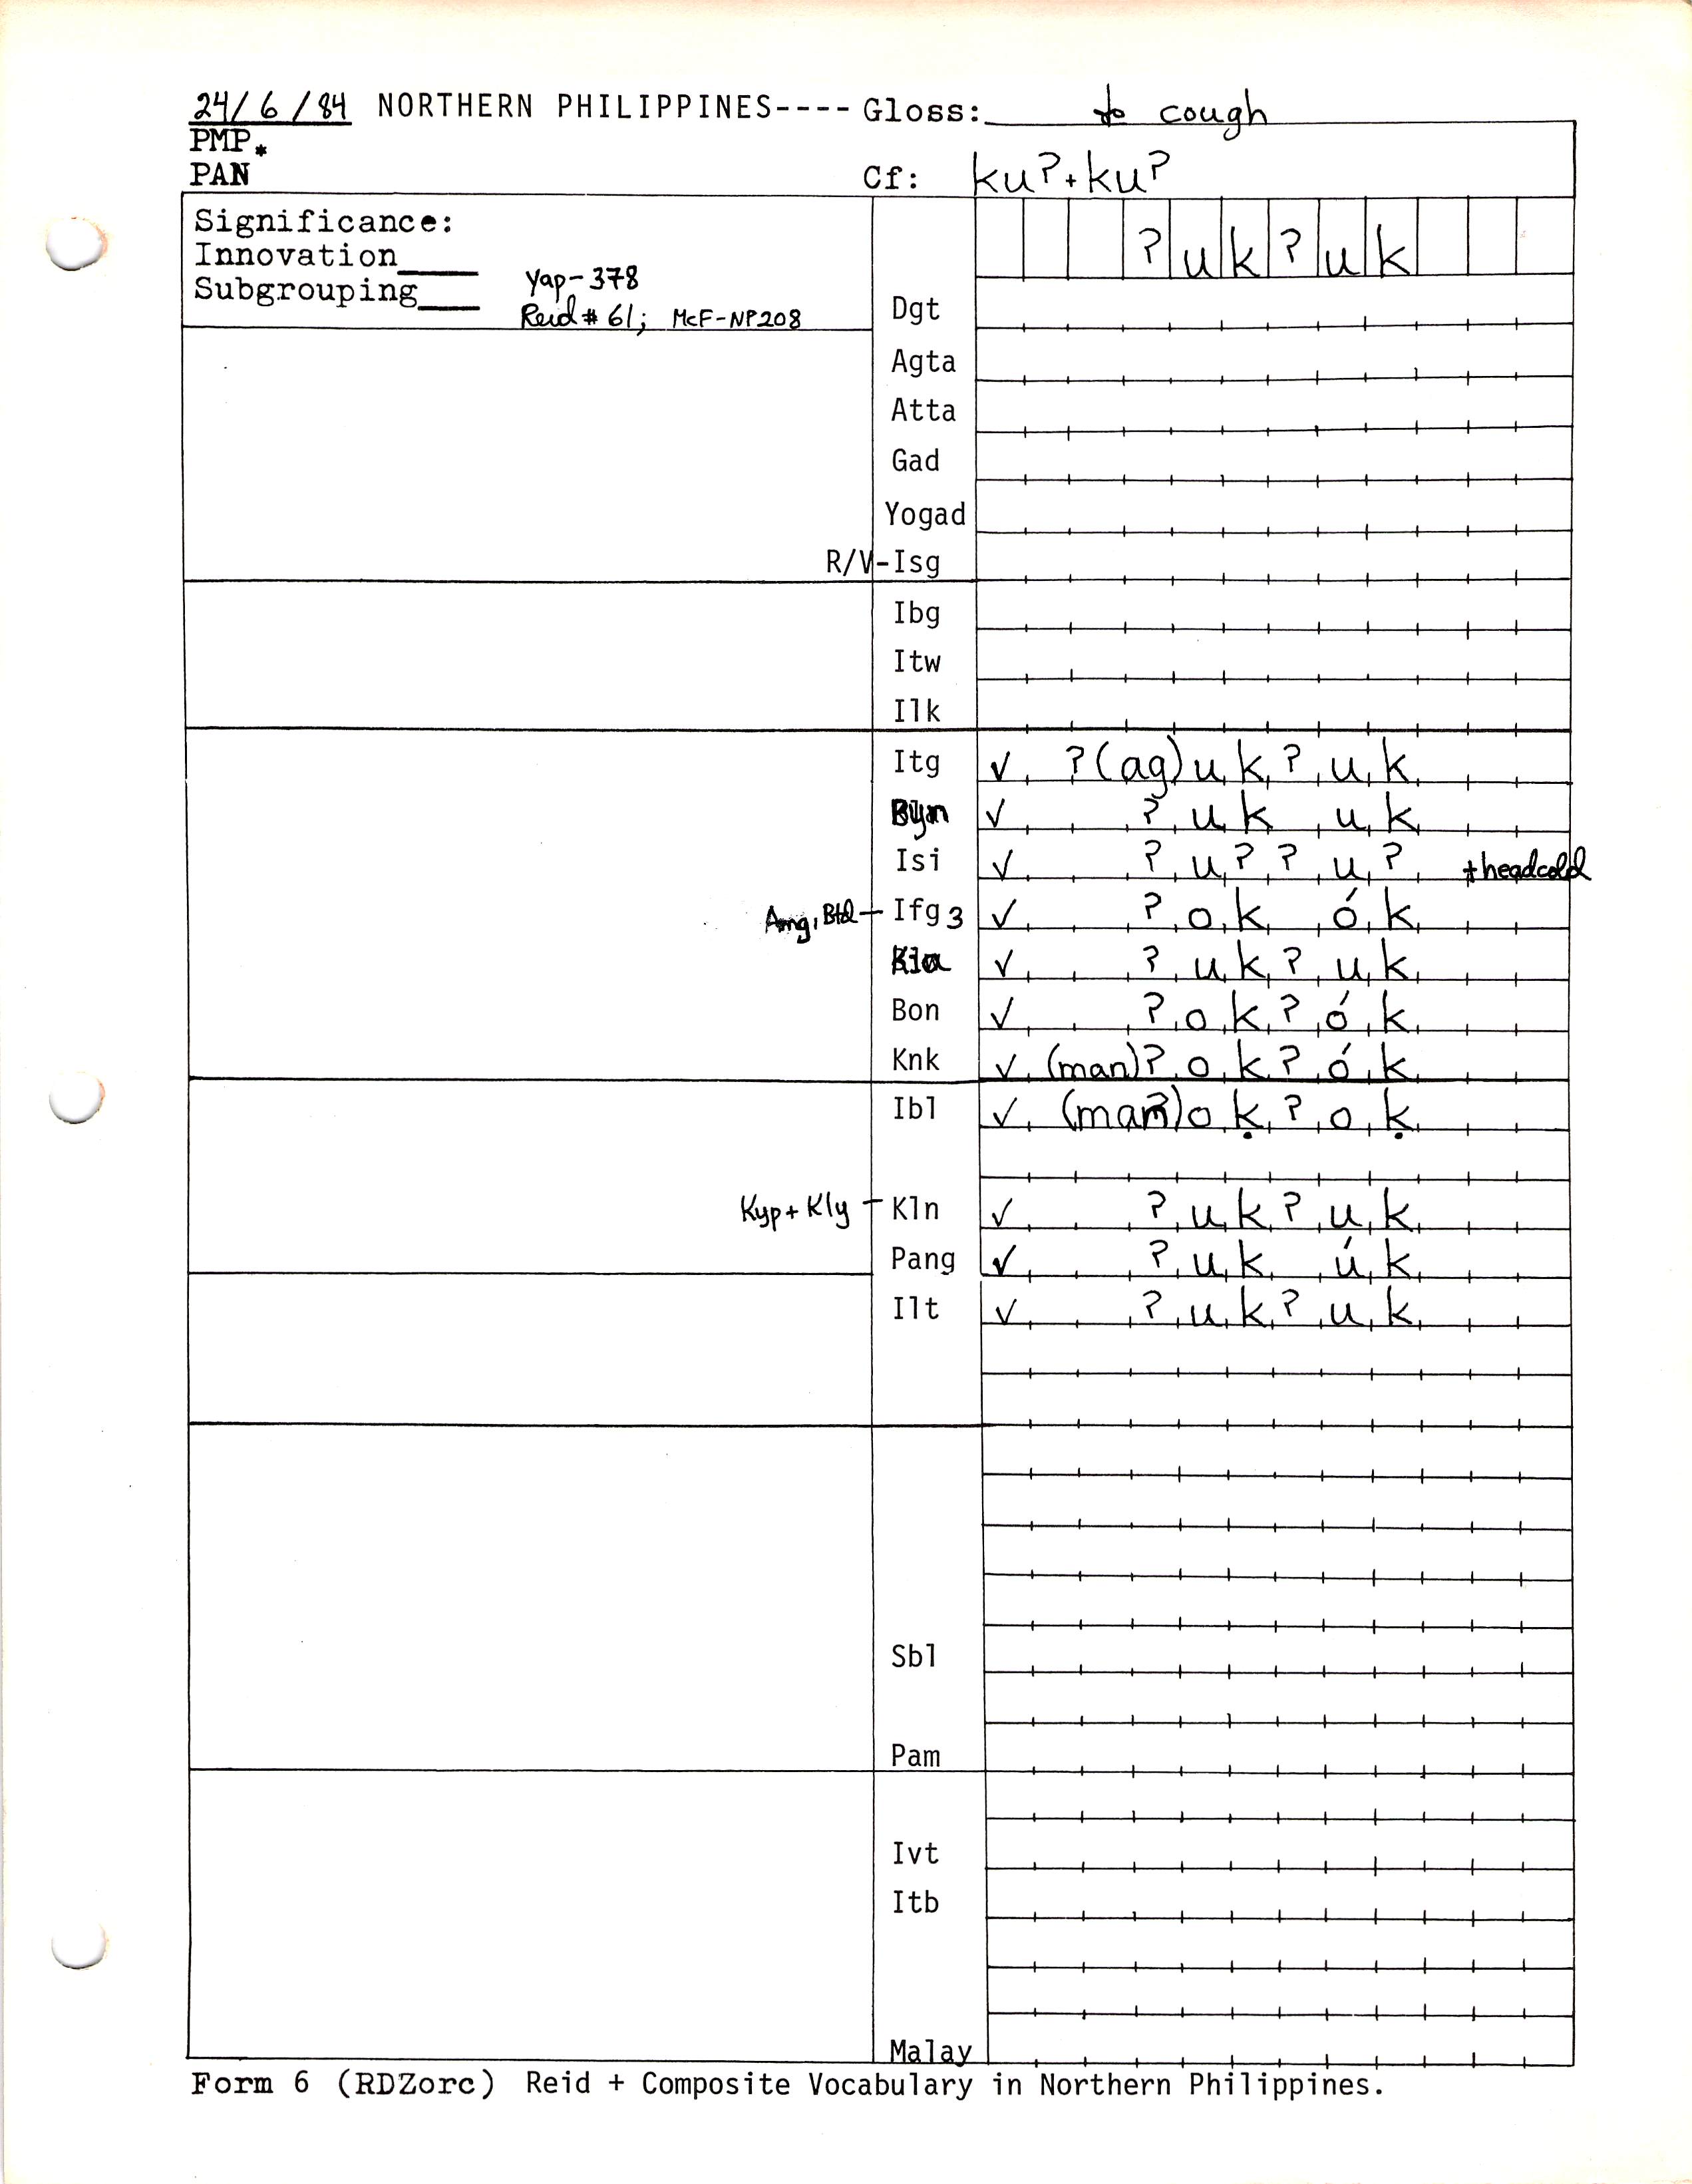 24/6/84 NORTHERN PHILIPPINES---- Gloss: to cough
PMP*
PAN Cf: kuʔ+kuʔ
Significance: ʔukʔuk
Innovation____
Subgrouping____ Yap-378
Reid # 61; McF-NP208
Dgt
Agta
Atta
Gad
Yogad
R/V-Isg
Ibg
Itw
Ilk
Itg ✓ ʔ(ag)ukʔuk
✓ ʔuk uk
Isi ✓ ʔuʔʔuʔ + headcold
Amg, Btd - Ifg3 ✓ ʔok ók
✓ ʔukʔuk
Bon ✓ ʔokʔók
Knk ✓ (man)ʔokʔók
Ibl ✓ oḳʔoḳ
Kyp + Kly - Kln ✓ ʔukʔuk
Pang ✓ ʔuk úk
Ilt ✓ ʔukʔuk
Sbl
Pam
Ivt
Itb
Malay
Form 6 (RDZorc) Reid + Composite Vocabulary in Northern Philippines.